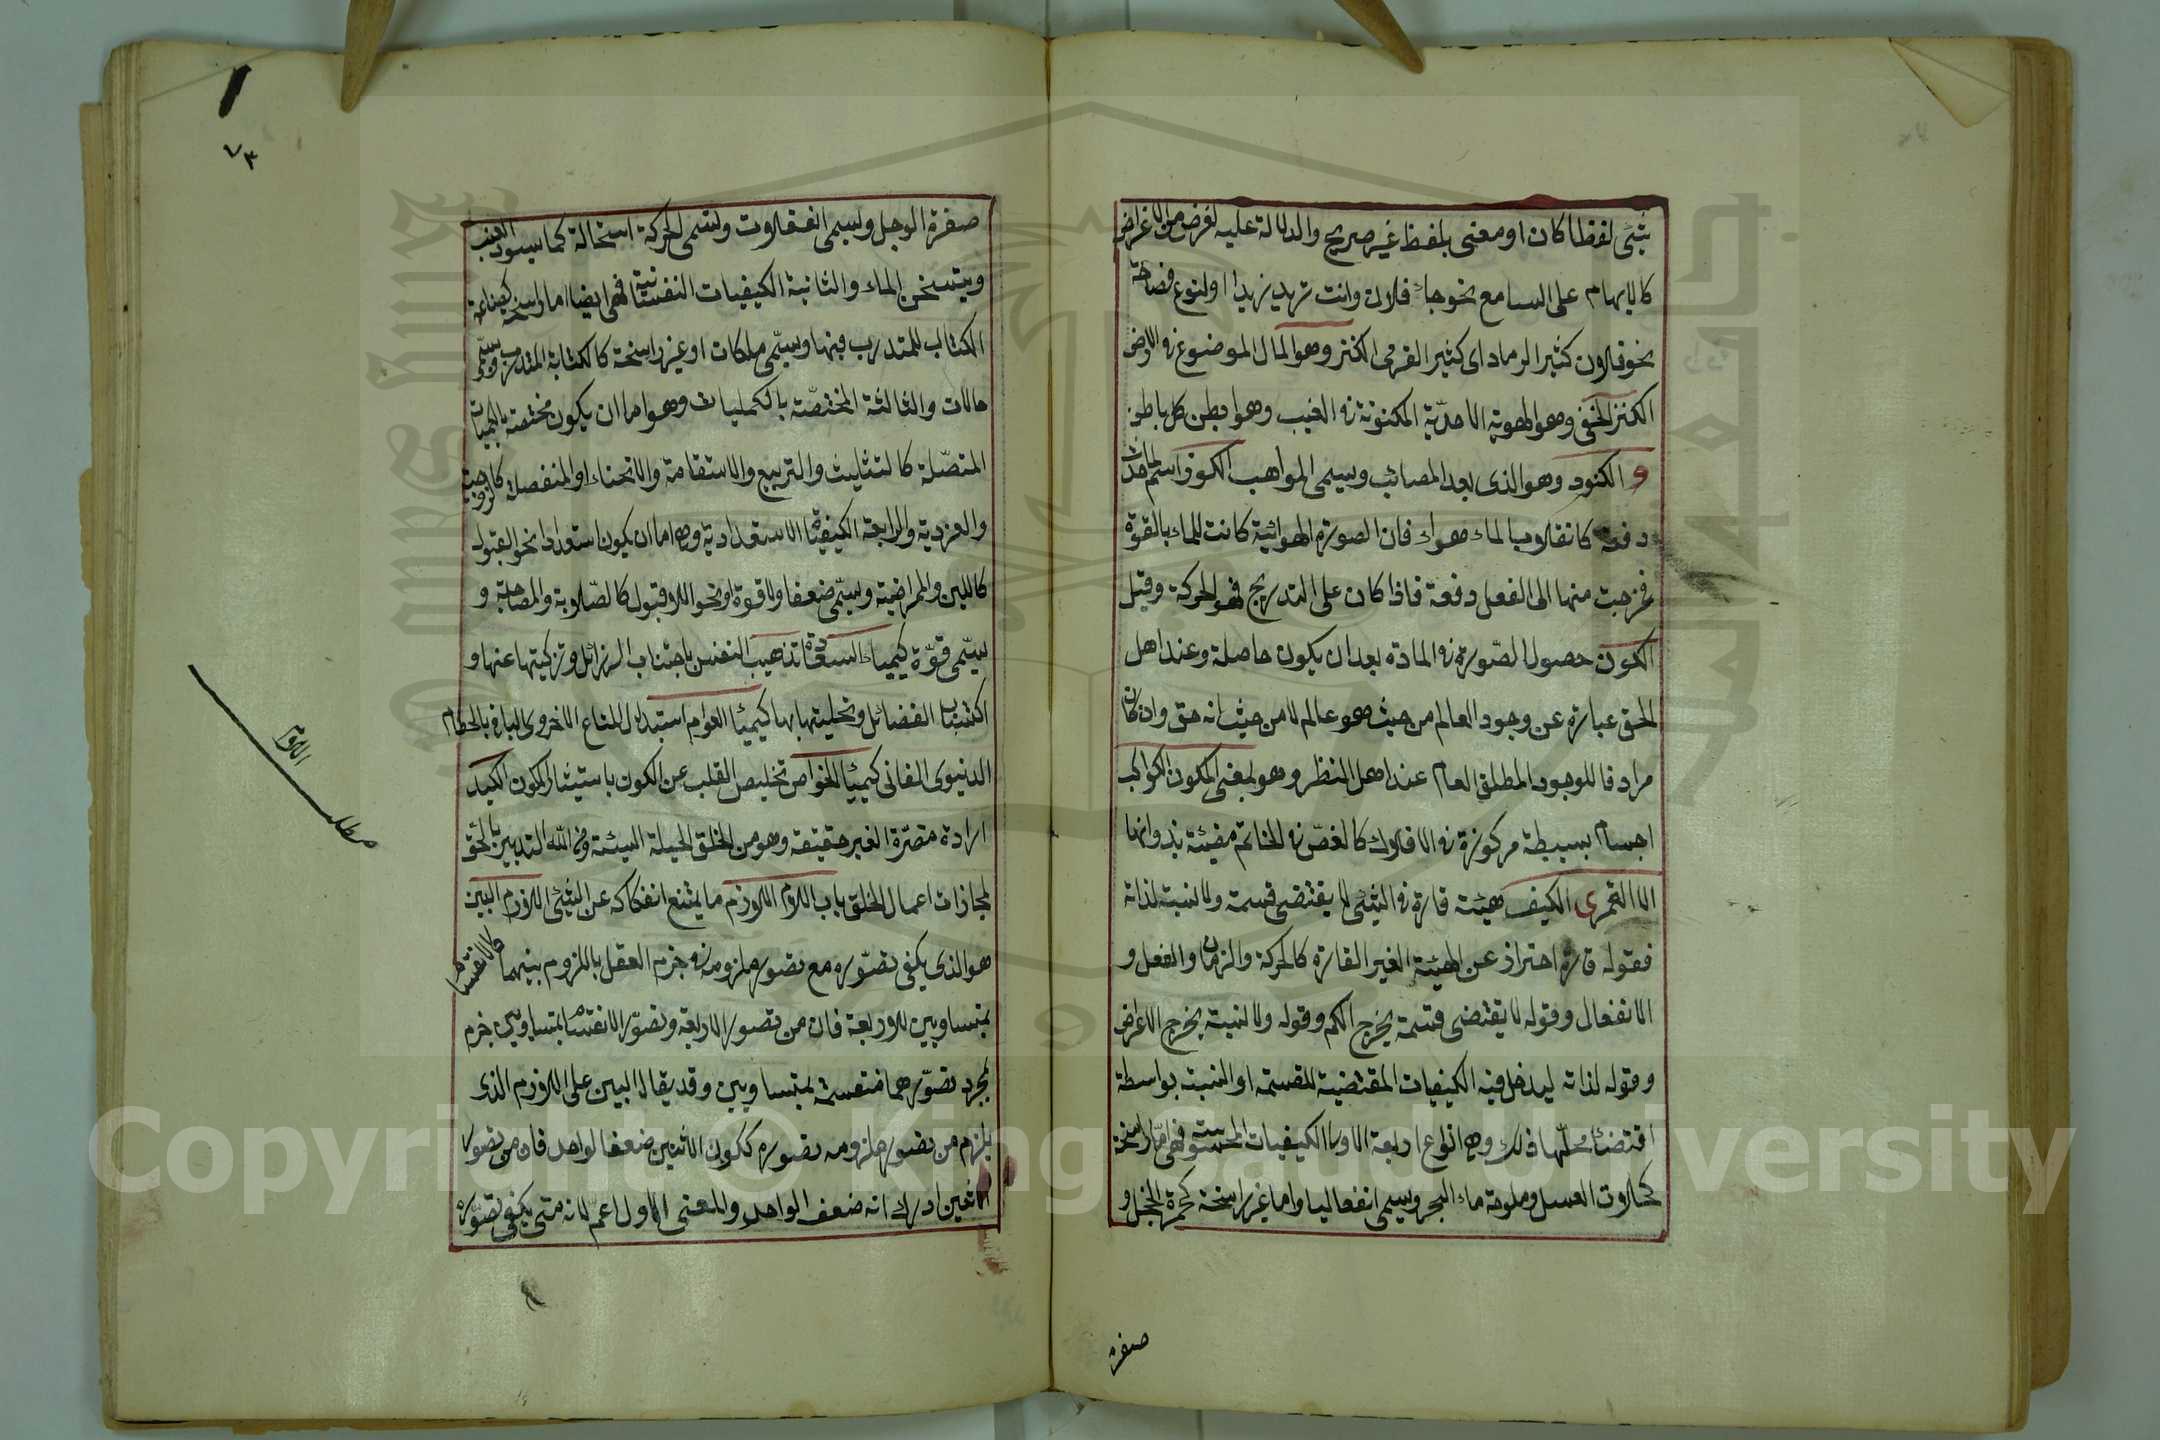 بشئ لفظا كان او معنى بلفظ غير صريح والدلالة عليه لغرض من الاغراض
كالابهام على السامع نحو جاء فلان وانت تريد زيدا او لنوع فصاحة
نحو فلان كثير الرماد اى كثير القرى الكنز وهو المال الموضوع فى الارض
الكنز المخفى وهو الهوية الاحدية المكنونة فى الغيب وهو ابطن كل باطن
و الكنود وهو الذى يعد المصائب وينسى المواهب الكون اسم لما حدث
دفعة كانقلاب الماء هواء فان الصورة الهوائية كانت للماء بالقوة
فخرجت منها الى الفعل دفعة فاذا كان على التدريج فهو الحركة وقيل
الكون حصول الصورة فى المادة بعد ان يكون حاصلة وعند اهل
الحق عبارة عن وجود العالم من حيث هو عالم لا من حيث انه حق وان كان
مرادفا للوجود المطلق العام عند اهل النظر وهو بمعنى المكون الكواكب
اجسام بسيطة مركوزة فى الافلاك كالفص فى الخاتم مضيئة بذواتها
الا القمرى الكيف هيئة قارة فى الشئ لا يقتضى قسمة ولا نسبة لذاته
فقوله قارة احتراز عن الهيئة الغير القارة كالحركة والزمان والفعل و
الانفعال وقوله لا يقتضى قسمة يخرج الكم وقوله ولا نسبة يخرج الاعراض
وقوله لذاته ليدخل فيه الكيفيات المقتضية للقسمة او النسبة بواسطة
اقتضاء محلها ذلك وهى انواع اربعة الاولى الكيفيات المحسوسة فهى اما راسخة
كحلاوت العسل وملوحة ماء البحر ويسمى انفعاليا واما غير راسخة كحمرة الخجل و
صفرة
٧٣
صفرة الوجل ويسمى انفعالات وتسمى الحركة استحالة كما يسود العنب
ويتسخن الماء والثانية الكيفيات النفسانية فهى ايضا اما راسخة كصناعة
الكتاب للمتدرب فيها ويسمى ملكات او غير راسخة كالكتابة المتدرب ويسمى
حالات والثالثة المختصة بالكمليات وهو اما ان يكون مختصة بالكميات
المتصلة كالتثليث والتربيع والاستقامة والانحناء او المنفصلة كالزوجية
والفردية والرابعة الكيفيات الاستعدادية وهى اما ان يكون استعدادا نحو القبول
كاللين والممراضية ويسمى ضعفا ولا قوة او نحو اللا قبول كالصلابة والمصاحبة و
يسمى قوة كيمياء السعادة تهذيب النفس باجتناب الرزائل وتزكيتها عنها و
اكتساب الفضائل وتحليتها بها كيمياء العوام استبدال المتاع الاخروى الباقى بالحطام
الدنيوى الفانى كيمياء الخواص تخليص القلب عن الكون باستيثار المكون الكيد
ارادة مضرة الغير حقيقة وهو من الخلق الحيلة السيئة ومن الله التدبير بالحق
لمجازات اعمال الخلق باب اللام اللازم ما يمتنع انفكاكه عن الشئ اللازم البين
هو الذى يكفى تصوره مع تصور ملزومه فى جزم العقل باللزوم بينهما كالانقسام
بمتساويين للاربعة فان من تصور الاربعة وتصور الانقسام بمتساويين جزم
بمجرد تصورهما منقسمة بمتساويين وقد يقال البين على اللازم الذى
يلزم من تصور ملزومه تصوره ككون الاثنين ضعفا لواحد فان من تصور
الاثنين ادرك انه ضعف الواحد والمعنى الاول اعم لانه متى يكفى تصوره
مطلب
اللام
Copyright © King Saud University